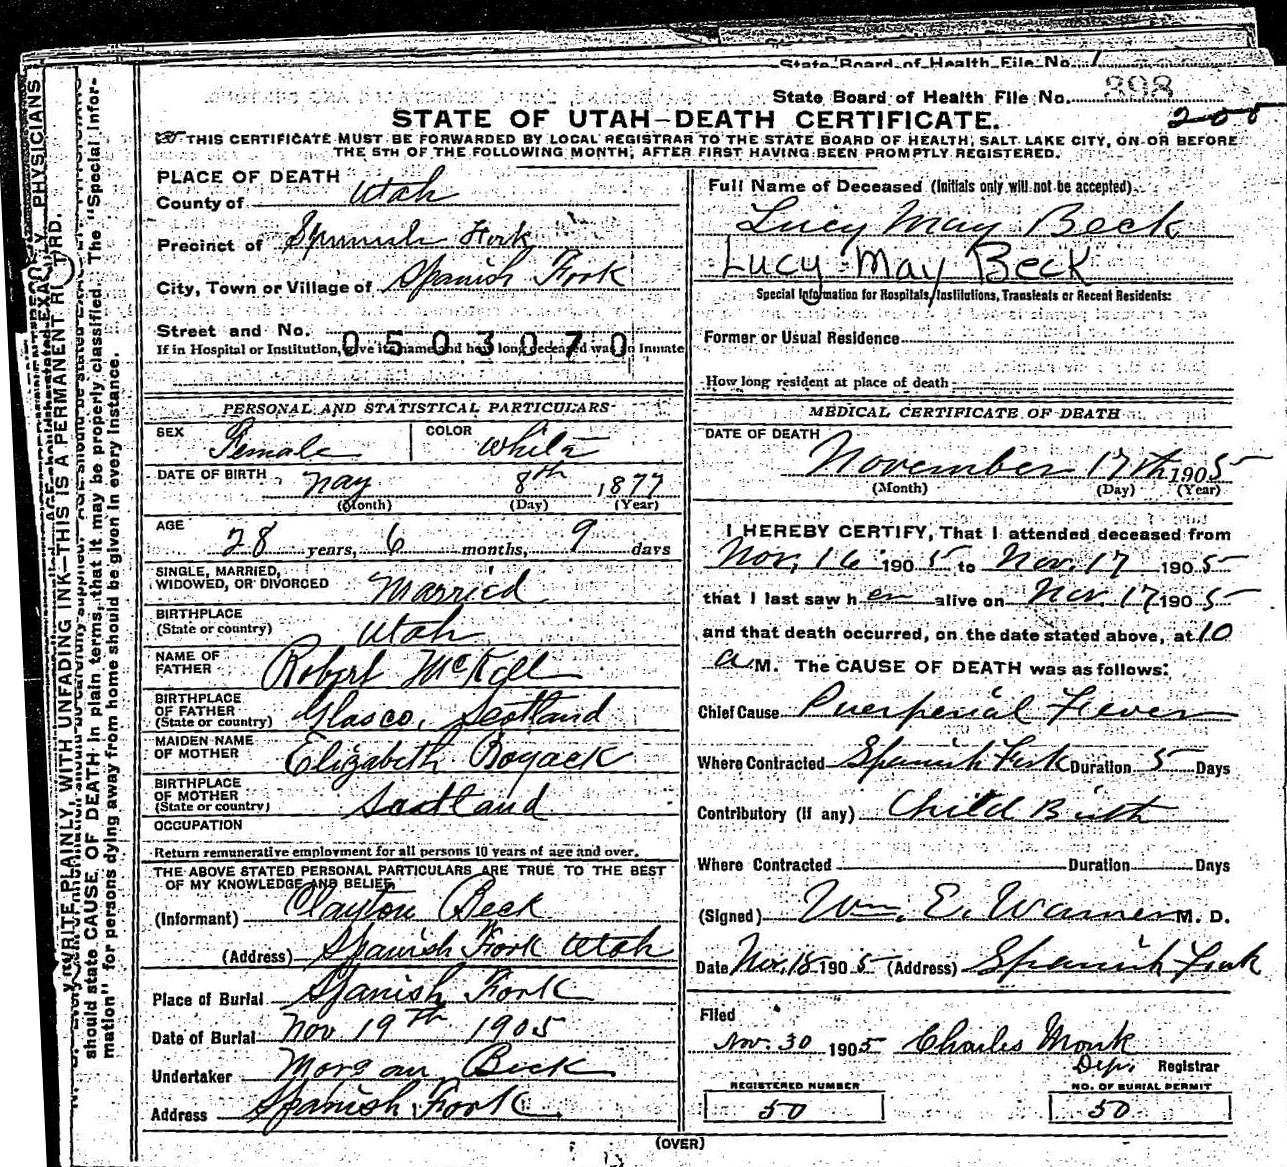 State Board of Health File No.
State Board of Health File No. 398
200
STATE OF UTAH—DEATH CERTIFICATE.
THIS CERTIFICATE MUST BE FORWARDED BY LOCAL REGISTRAR TO THE STATE BOARD OF HEALTH, SALT LAKE CITY, ON OR BEFORE
THE 5TH OF THE FOLLOWING MONTH, AFTER FIRST HAVING BEEN PROMPTLY REGISTERED.
PLACE OF DEATH
County of Utah
Precinct of Spanish Fork
City, Town or Village of Spanish Fork
Street and No.
0503070
If in Hospital or Institution, give its name and how long deceased was an Inmate
PERSONAL AND STATISTICAL PARTICULARS
SEX Female COLOR White
DATE OF BIRTH May 8th 1877
(Month) (Day) (Year)
AGE 28 years, 6 months, 9 days
SINGLE, MARRIED,
WIDOWED, OR DIVORCED Married
BIRTHPLACE
(State or country) Utah
NAME OF
FATHER Robert McKell
BIRTHPLACE
OF FATHER
(State or country) Glasco, Scotland
MAIDEN NAME
OF MOTHER Elizabeth Boyack
BIRTHPLACE
OF MOTHER
(State or country) Scotland
OCCUPATION
Return remunerative employment for all persons 10 years of age and over.
THE ABOVE STATED PERSONAL PARTICULARS ARE TRUE TO THE BEST
OF MY KNOWLEDGE AND BELIEF
(Informant) Clayton Beck
(Address) Spanish Fork Utah
Place of Burial Spanish Fork
Date of Burial Nov 19th 1905
Undertaker Morgan Beck
Address Spanish Fork
Full Name of Deceased (Initials only will not be accepted)
Lucy May Beck
Lucy May Beck
Special Information for Hospitals, Institutions, Transients or Recent Residents:
Former or Usual Residence
How long resident at place of death
MEDICAL CERTIFICATE OF DEATH
DATE OF DEATH
November 17th 1905
(Month) (Day) (Year)
I HEREBY CERTIFY, That I attended deceased from
Nov. 16 1905 to Nov. 17 1905
that I last saw her alive on Nov. 17 1905
and that death occurred, on the date stated above, at 10
a M. The CAUSE OF DEATH was as follows:
Chief Cause Puerperial Fever
Where Contracted Spanish Fork Duration 5 Days
Contributory (if any) Child Birth
Where Contracted Duration Days
(Signed) Wm. E. Warner M. D.
Date Nov. 18 1905 (Address) Spanish Fork
Filed
Nov. 30 1905 Charles Monk
Dep. Registrar
REGISTERED NUMBER
50
NO. OF BURIAL PERMIT
50
(OVER)
WRITE PLAINLY, WITH UNFADING INK—THIS IS A PERMANENT RECORD.
should state CAUSE OF DEATH in plain terms, that it may be properly classified. The "Special Infor-
mation" for persons dying away from home should be given in every instance.